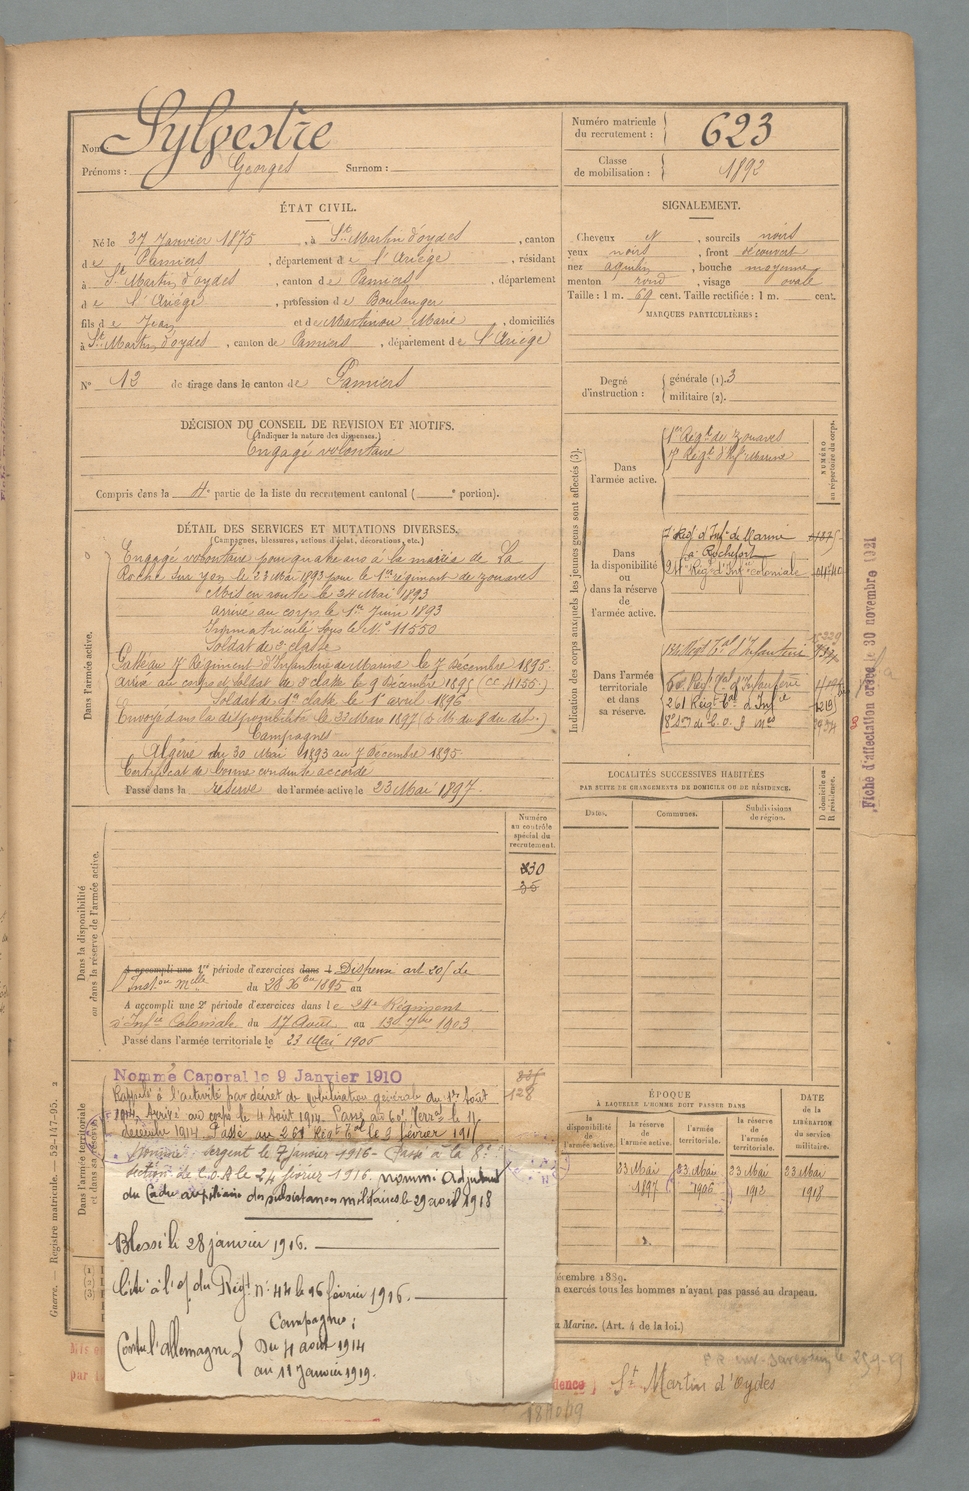 Nom Sylvestre
Prénoms : Georges Surnom :
Numéro matricule du recrutement : 623
Classe de mobilisation : 1892
ÉTAT CIVIL.
Né le 27 Janvier 1875, à St Martin d'oydes, canton
de Pamiers, département de l'Ariège, résidant
à St Martin d'oydes, canton de Pamiers, département
de l'Ariège, profession de Boulanger
fils de Jean et de Martinou Marie, domiciliés
à St Martin d'oydes, canton de Pamiers, département de l'Ariège
N° 12 de tirage dans le canton de Pamiers
SIGNALEMENT.
Cheveux N, sourcils noirs
yeux noirs, front découvert
nez aquilin, bouche moyenne
menton rond, visage ovale
Taille : 1 m. 69 cent. Taille rectifiée : 1 m. cent.
MARQUES PARTICULIÈRES :
Degré d'instruction : générale (1). 3
militaire (2).
DÉCISION DU CONSEIL DE REVISION ET MOTIFS.
(Indiquer la nature des dispenses.)
Engagé volontaire
Compris dans la 4e partie de la liste du recrutement cantonal ( e portion).
DÉTAIL DES SERVICES ET MUTATIONS DIVERSES.
(Campagnes, blessures, actions d'éclat, décorations, etc.)
Dans l'armée active.
Engagé volontaire pour quatre ans à la mairie de La
Roche sur Yon le 23 Mai 1893 pour le 1er régiment de zouaves
Mis en route le 24 Mai 1893
Arrivé au corps le 1er Juin 1893
Immatriculé sous le N° 11550
Soldat de 2e classe
Passé au 7e Régiment d'Infanterie de Marine le 7 Décembre 1895.
Arrivé au corps et soldat de 2e classe le 9 Décembre 1895 (cc 4155.)
Soldat de 1re classe le 1er avril 1896
Envoyé dans la disponibilité le 23 Mars 1897
Campagnes
Algérie du 30 Mai 1893 au 7 Décembre 1895.
Certificat de bonne conduite accordé
Passé dans la réserve de l'armée active le 23 Mai 1897.
Indication des corps auxquels les jeunes gens sont affectés (3).
NUMÉRO au répertoire du corps.
Dans l'armée active.
1er Régt de zouaves
7e Régt d'Infie Marine
Dans la disponibilité ou dans la réserve de l'armée active.
7e Régt d'Infie de Marine
à Rochefort
24e Régt d'Infie coloniale
Dans l'armée territoriale et dans sa réserve.
134 Régt Tal d'Infanterie
60e Régt Tal d'Infanterie
261 Régt Tal d'Infie
LOCALITÉS SUCCESSIVES HABITÉES
PAR SUITE DE CHANGEMENTS DE DOMICILE OU DE RÉSIDENCE.
Dates.
Communes.
Subdivisions de région.
D domicile ou R résidence.
Fiche d'affectation créée le 30 novembre 1921
Dans la disponibilité ou dans la réserve de l'armée active.
Numéro au contrôle spécial du recrutement.
A accompli une 1re période d'exercices dans l Dispensé art 20/ de
l'Inston Melle du 28 Xbre 1895 au
A accompli une 2e période d'exercices dans le 24e Régiment
d'Infie Coloniale du 17 Août au 13 7bre 1903
Passé dans l'armée territoriale le 23 Mai 1906
Dans l'armée territoriale et dans sa réserve
Nommé Caporal le 9 Janvier 1910
128
Rappelé à l'activité par décret de mobilisation générale du 1er Août
1914. Arrivé au corps le 4 Août 1914. Passé au 60e Terral le 11
décembre 1914. Passé au 261 Régt Tal le 3 février 191
Nommé sergent le 7 janvier 1916 - Passé à la 8e
section de C.O.A le 24 février 1916. nommé Adjudant
du Cadre auxiliaire des subsistances militaires le 29 août 1918
Blessé le 28 janvier 1916.
Cité à l'o/ du Régt n° 44 le 26 février 1916.
Campagnes :
Contre l'allemagne { Du 4 août 1914
au 11 Janvier 1919.
ÉPOQUE
À LAQUELLE L'HOMME DOIT PASSER DANS
la disponibilité de l'armée active.
la réserve de l'armée active.
l'armée territoriale.
la réserve de l'armée territoriale.
DATE de la LIBÉRATION du service militaire.
23 Mai 1897
23 Mai 1906
23 Mai 1912
23 Mai 1918
écembre 1889.
n exercés tous les hommes n'ayant pas passé au drapeau.
Marine. (Art. 4 de la loi.)
Guerre. — Registre matricule. — 52-147-95. 2
St Martin d'Oydes